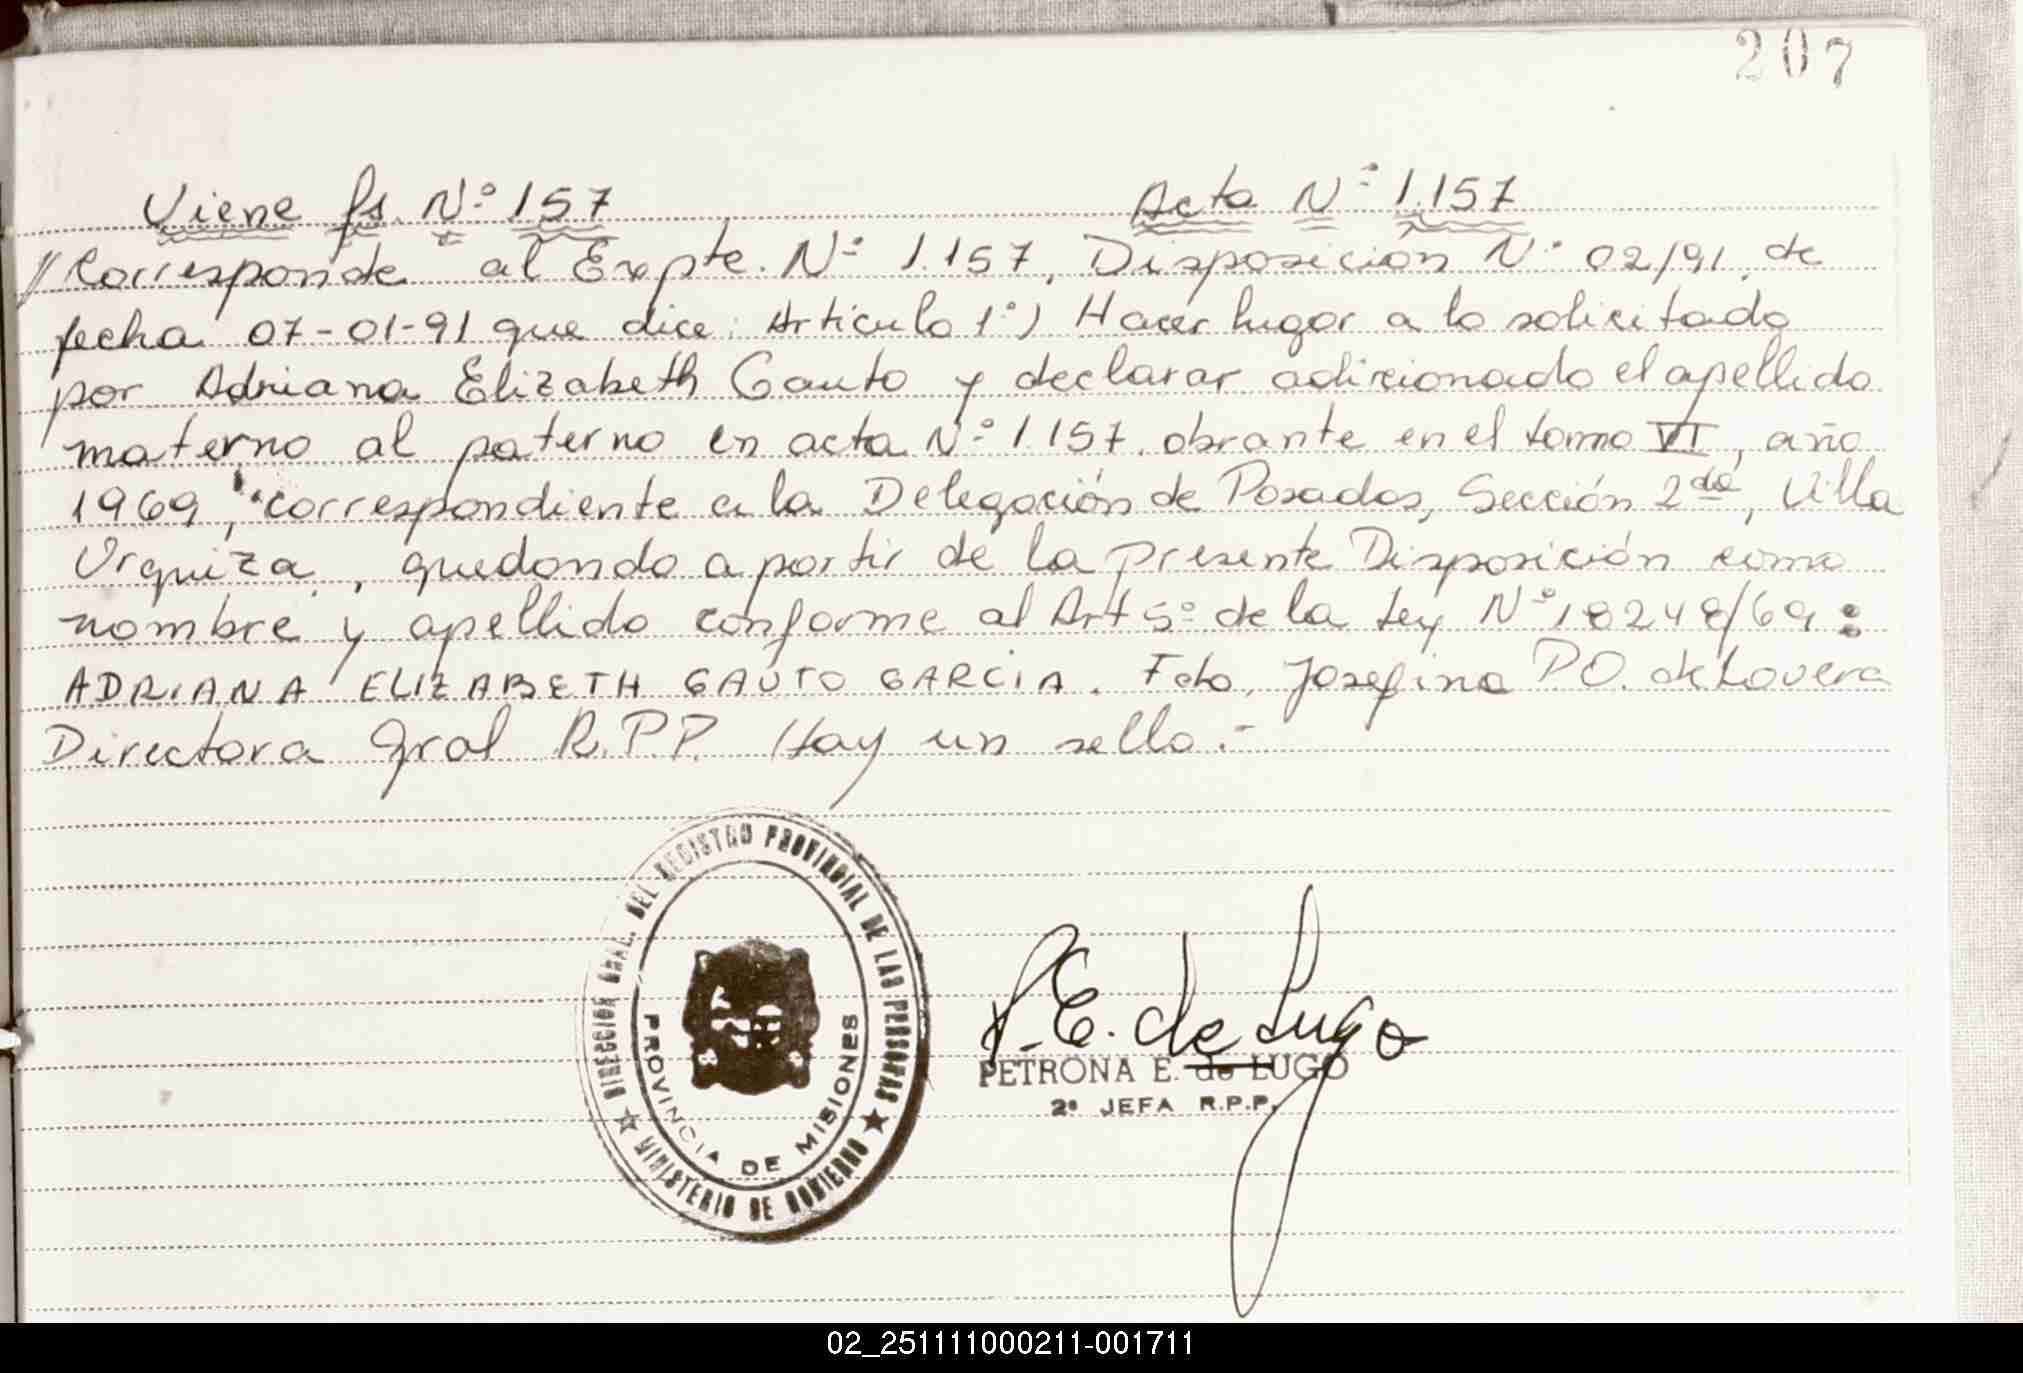 207
Viene fs. N° 157 Acta N° 1.157
// Corresponde al Expte. N° 1.157, Disposición N° 02/91, de
fecha 07-01-91 que dice: Artículo 1°) Hacer lugar a lo solicitado
por Adriana Elizabeth Gauto y declarar adicionado el apellido
materno al paterno en acta N° 1.157, obrante en el tomo VI, año
1969, correspondiente a la Delegación de Posadas, Sección 2da, Villa
Urquiza, quedando a partir de la presente Disposición como
nombre y apellido conforme al Art 5° de la Ley N° 18248/69:
ADRIANA ELIZABETH GAUTO GARCIA. Fdo, Josefina P.O. de Lovera
Directora Gral R.P.P. Hay un sello.-
DIRECCION GRAL. DEL REGISTRO PROVINCIAL DE LAS PERSONAS
PROVINCIA DE MISIONES
★ MINISTERIO DE GOBIERNO ★
P.E. de Lugo
PETRONA E. de LUGO
2° JEFA R.P.P.
02_251111000211-001711